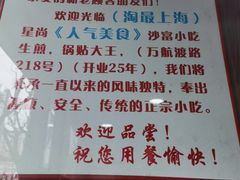 欢迎光临（淘最上海）
星尚《人气美食》沙富小吃
生煎，锅贴大王，（万航渡路
218号）（开业25年），我们将
一直以来的风味独特，奉出
、安全、传统的正宗小吃。
欢迎品尝！
祝您用餐愉快！